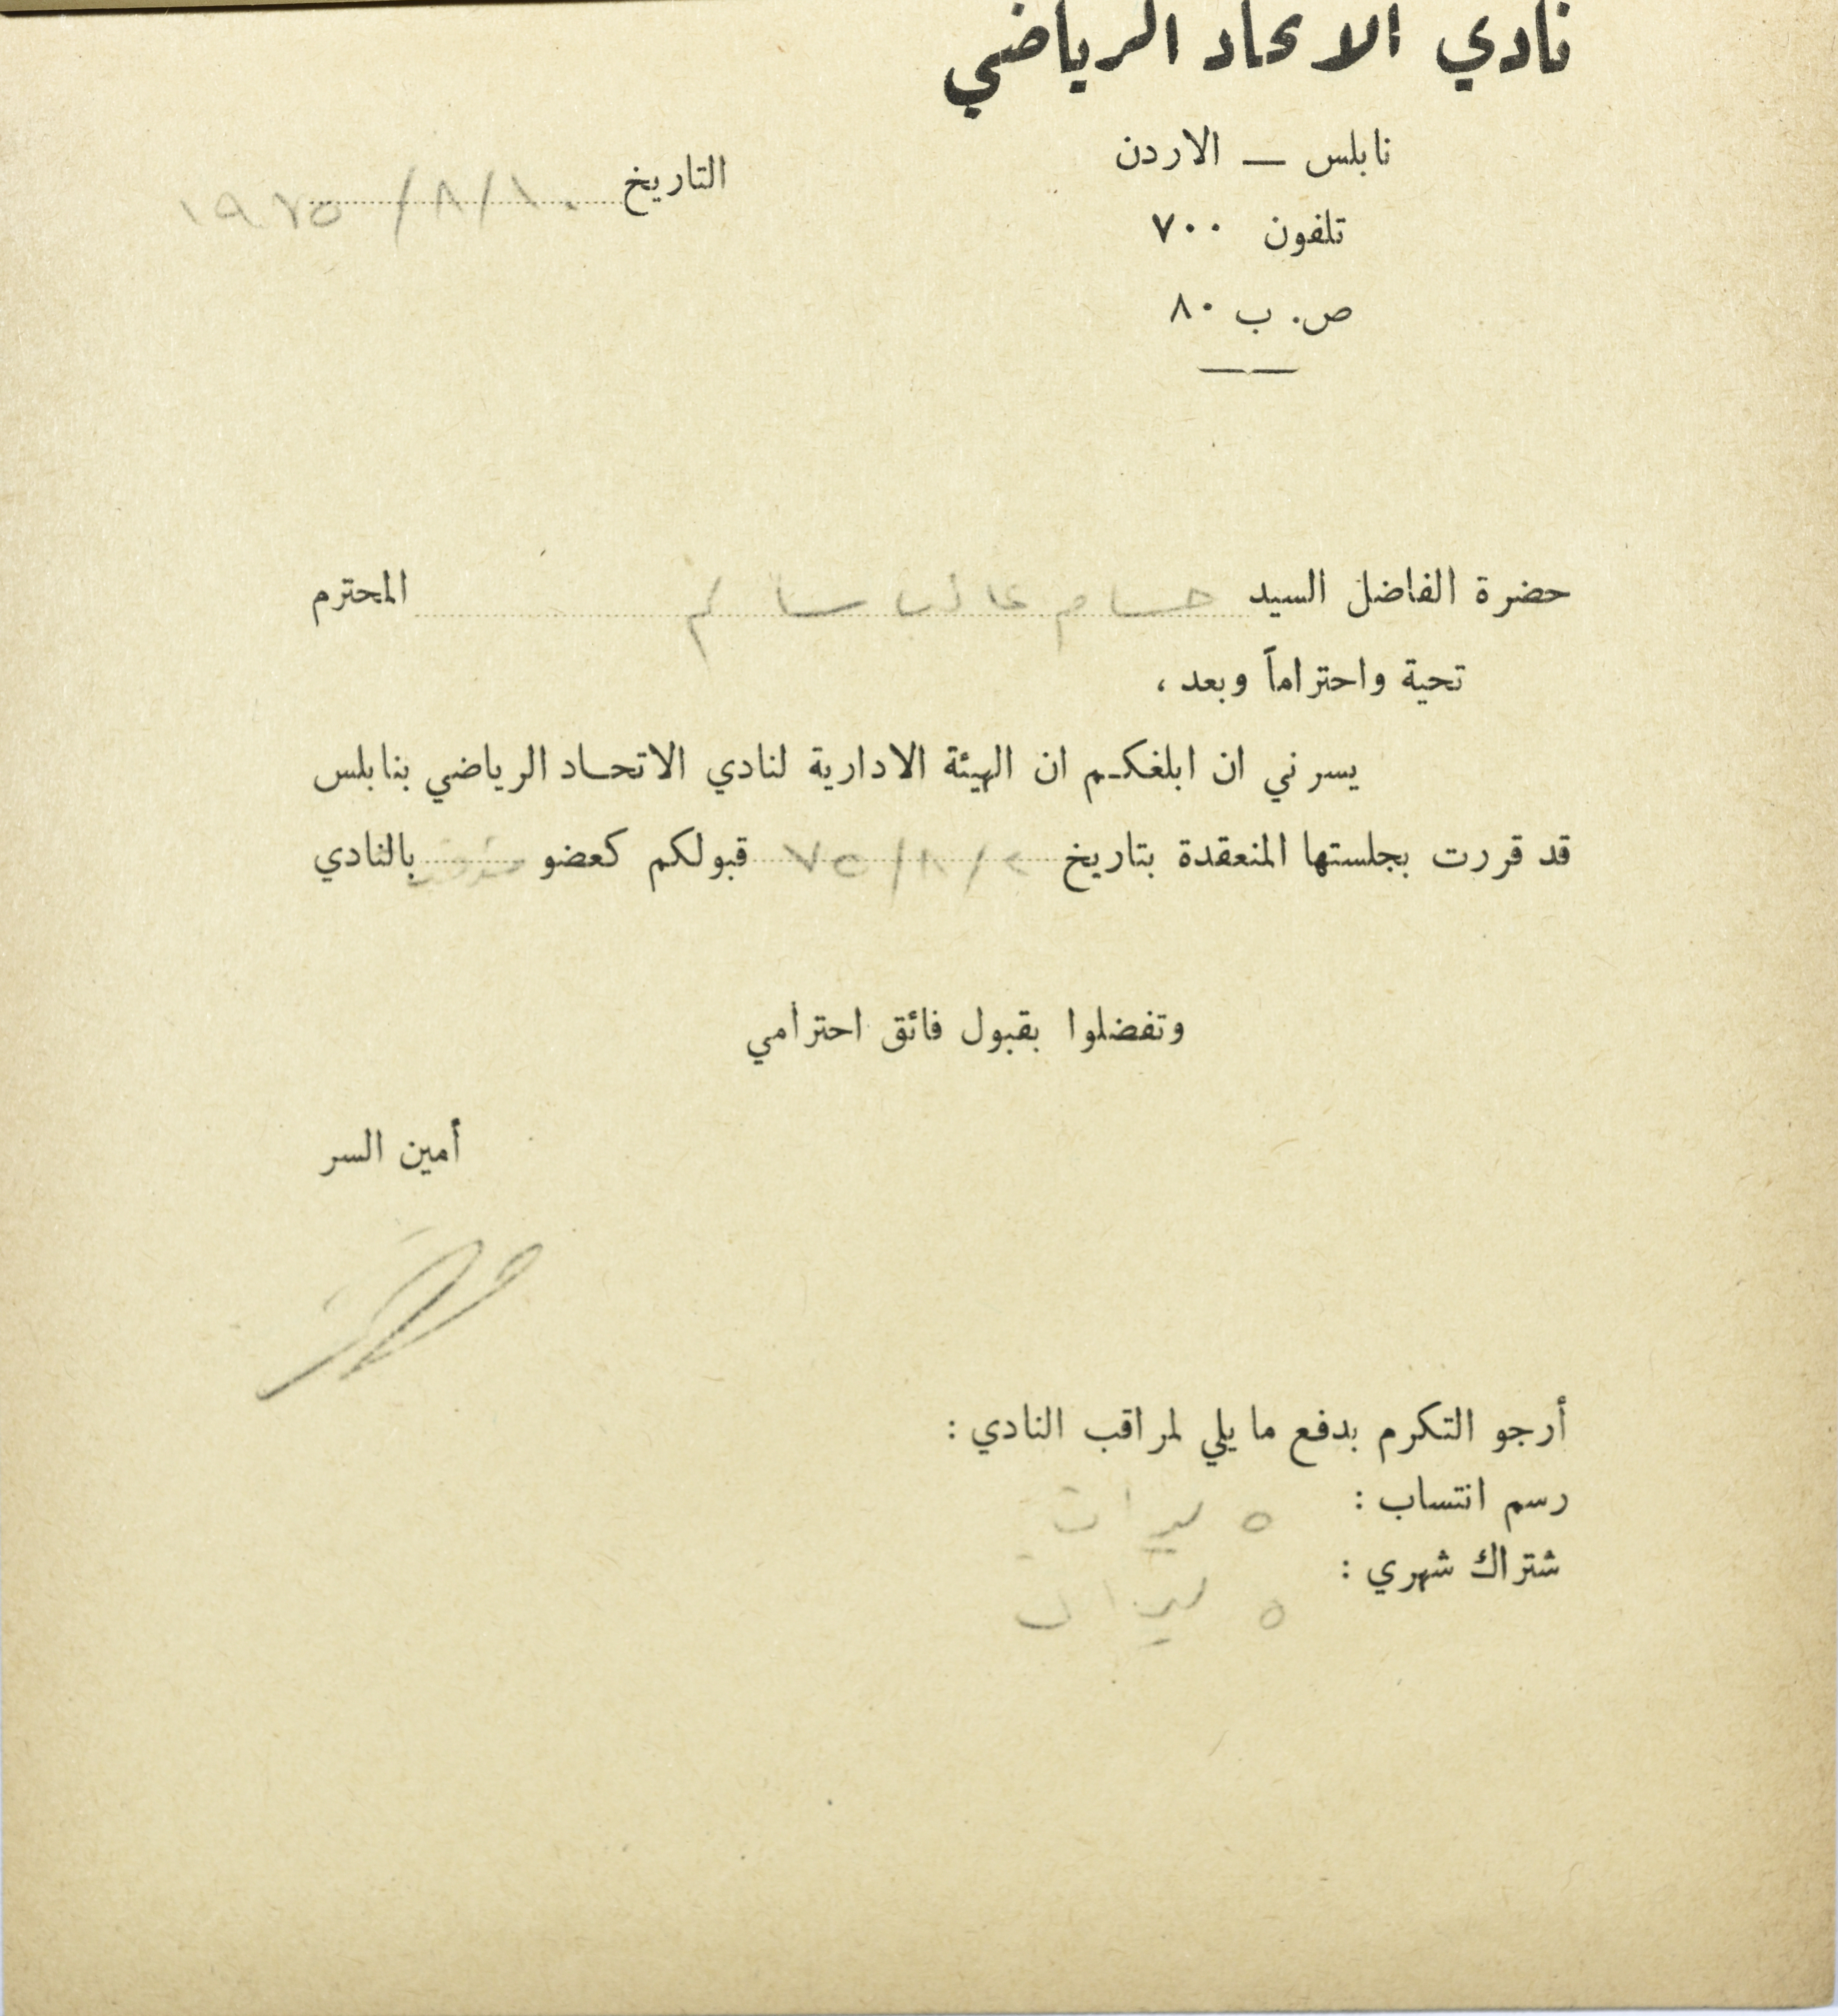 نادي الاتحاد الرياضي
نابلس — الاردن
تلفون ٧٠٠
ص. ب ٨٠
التاريخ ١٠/٨/١٩٧٥
حضرة الفاضل السيد حسام غالب سالم المحترم
تحية واحتراماً وبعد ،
يسرني ان ابلغكم ان الهيئة الادارية لنادي الاتحاد الرياضي بنابلس
قد قررت بجلستها المنعقدة بتاريخ ٢/٨/٧٥ قبولكم كعضو مؤقت بالنادي
وتفضلوا بقبول فائق احترامي
أمين السر
أرجو التكرم بدفع ما يلي لمراقب النادي :
رسم انتساب : ٥ ليرات
شتراك شهري : ٥ ليرات